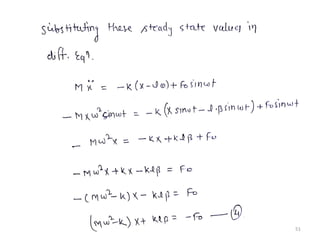 Substituting these steady state values in
diff. Eqn.
Mẍ = -K(x-lθ)+ F₀ sinωt
-Mxω² sinωt = -K(X sinωt - l·β sinωt) + F₀ sinωt
- Mω²X = -KX + Klβ + F₀
-Mω²X + KX - Klβ = F₀
-(Mω²-K)X - Klβ = F₀
(Mω²-K)X + Klβ = -F₀ — ④
51